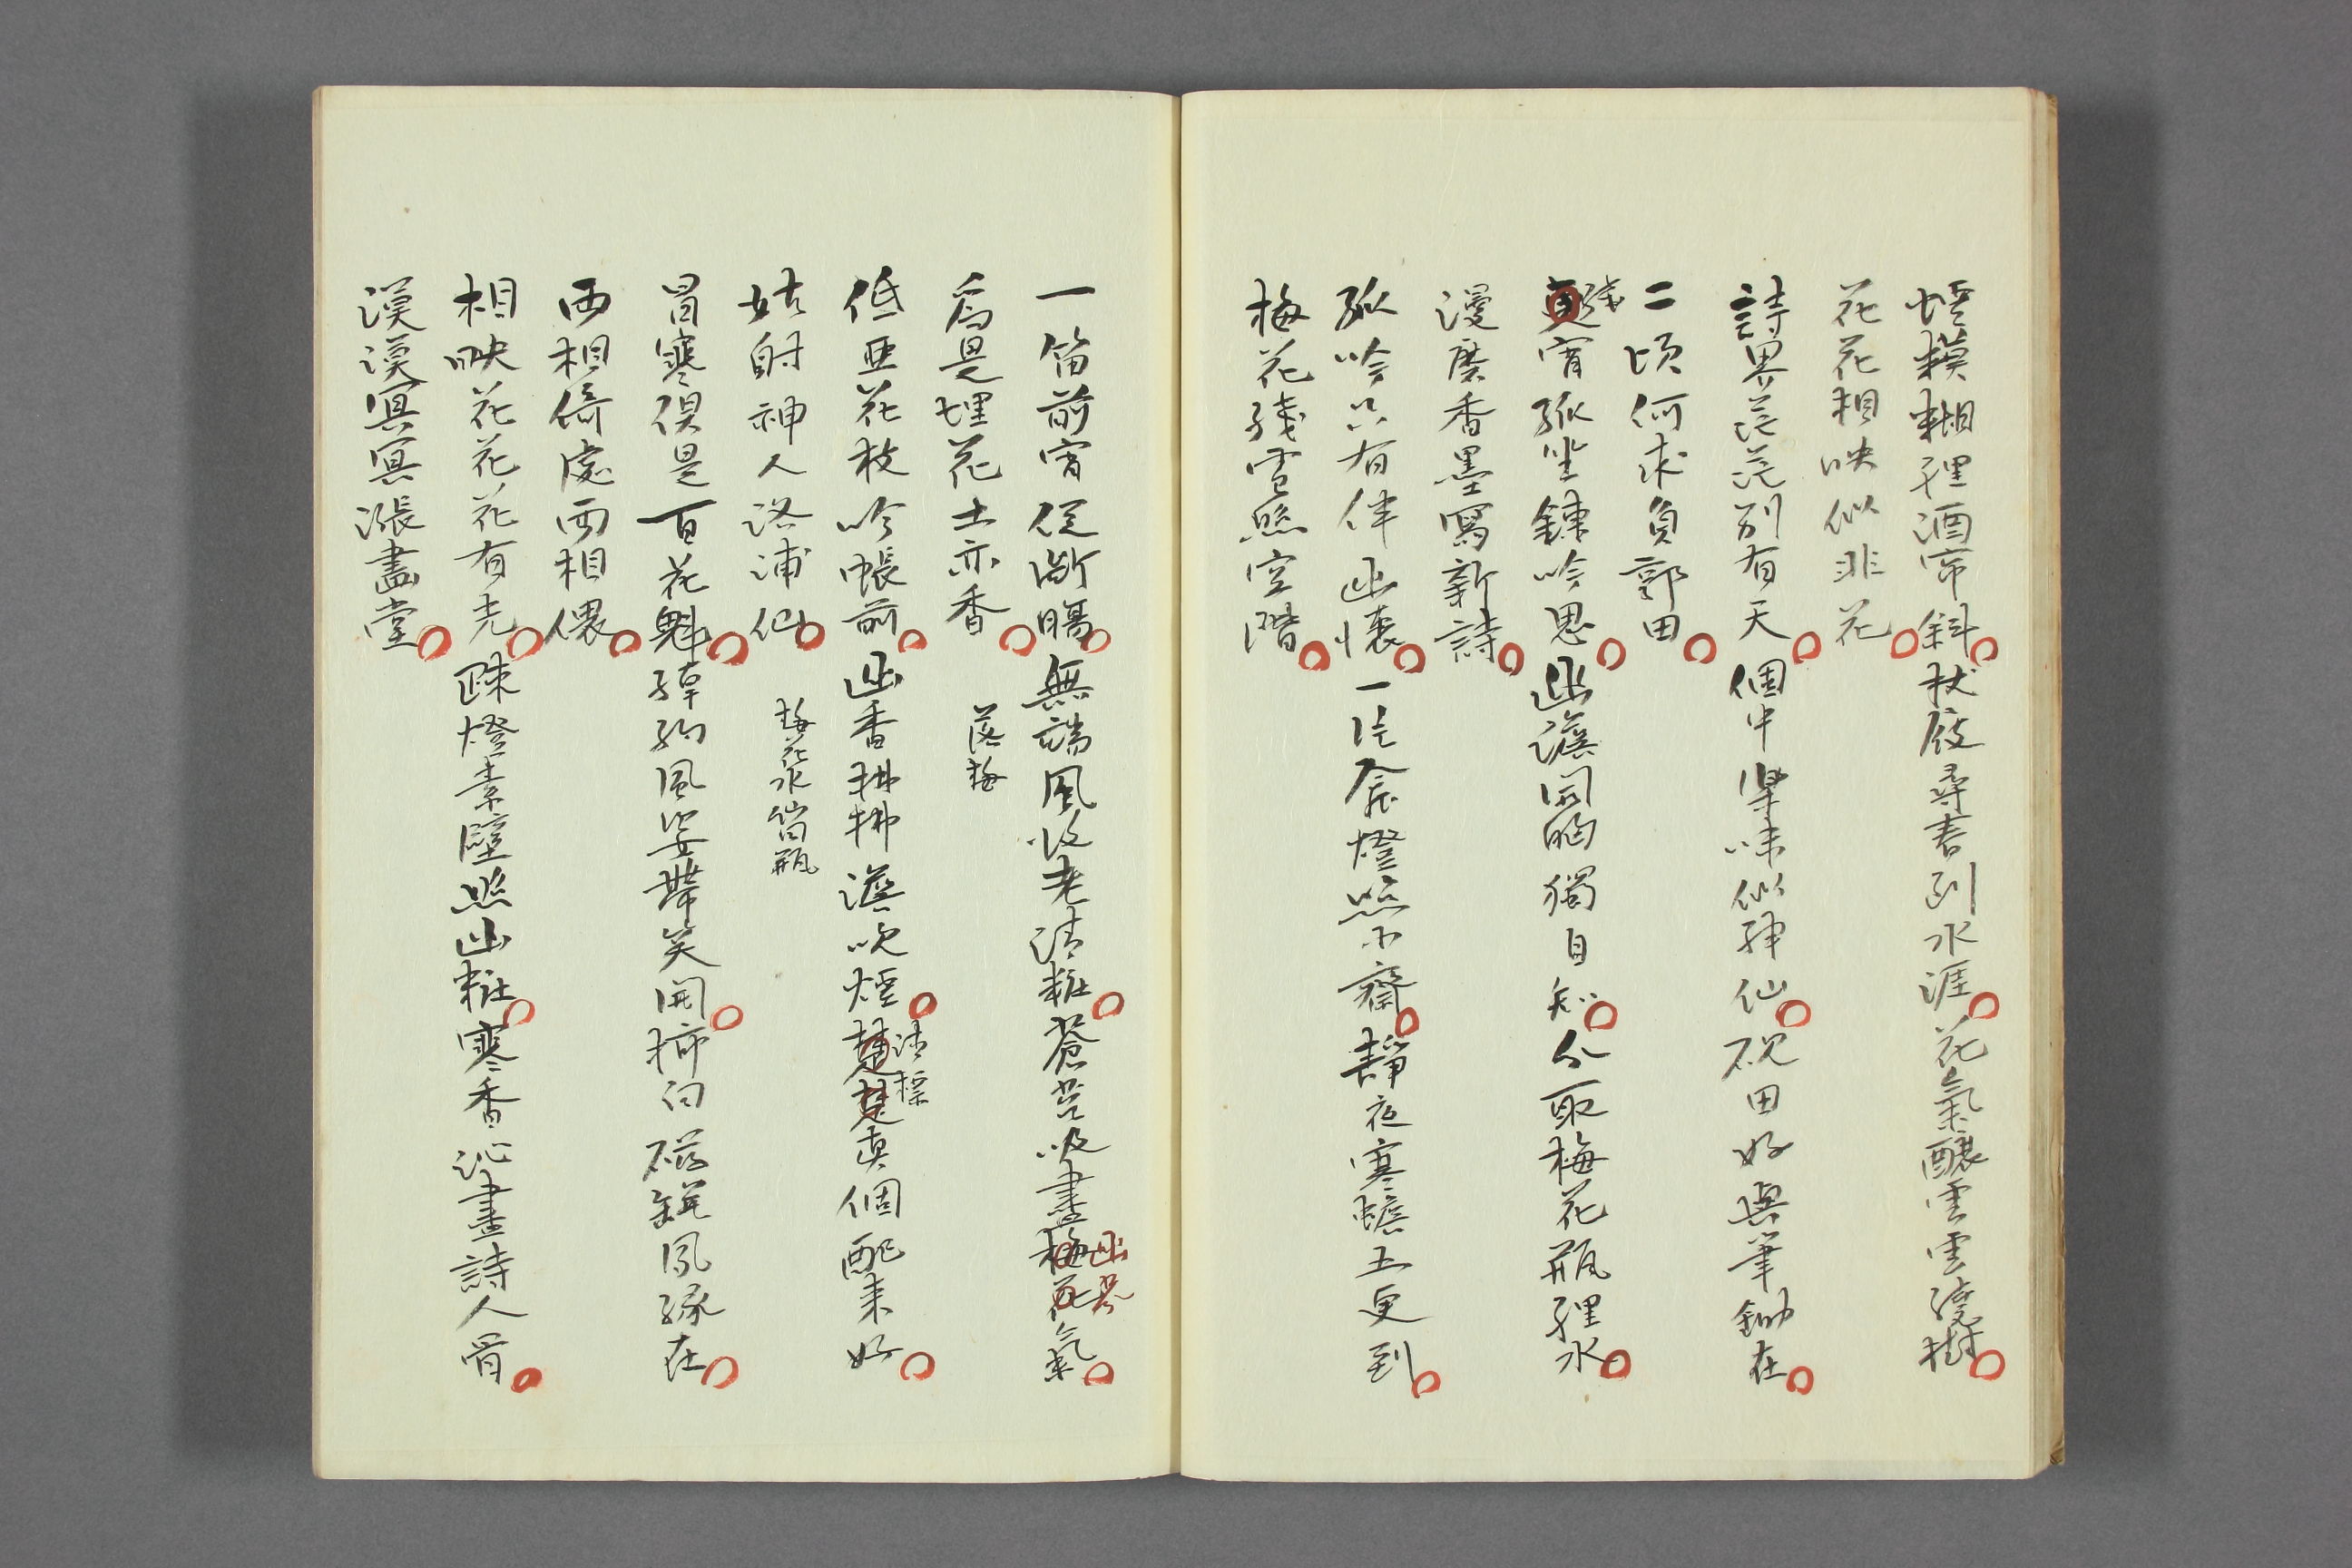 烟模糊裡酒帘斜杖屐尋春到水涯花氣釀雲雲繞樹
花花相映似非花
詩界茫茫別有天個中渠味似神仙硯田好與筆鋤在
二頃何求負郭田
殘
更宵孤坐鍊吟思幽澹閒晒獨自知分取梅花瓶裡水
漫磨香墨寫新詩
孤吟只有伴幽懷一穗龕燈照小齋靜夜寒蟾五更到
梅花殘雪照空階
一笛前宵促斷腸無端風收老清粧蒼苔吸盡梅花氣
幽芳
為是埋花土亦香
落梅
低亜花枝吟帳前幽香拂拂澹吹烟楚楚真個配来好
清標
姑射神人洛浦仙
梅花水仙同瓶
冒寒倶是百花魁綽約風姿帶笑開插向磁缾風緣在
両相倚處両相偎
相映花花花有光踈燈素壁照幽粧寒香沁盡詩人骨
漠漠冥冥漲畫堂